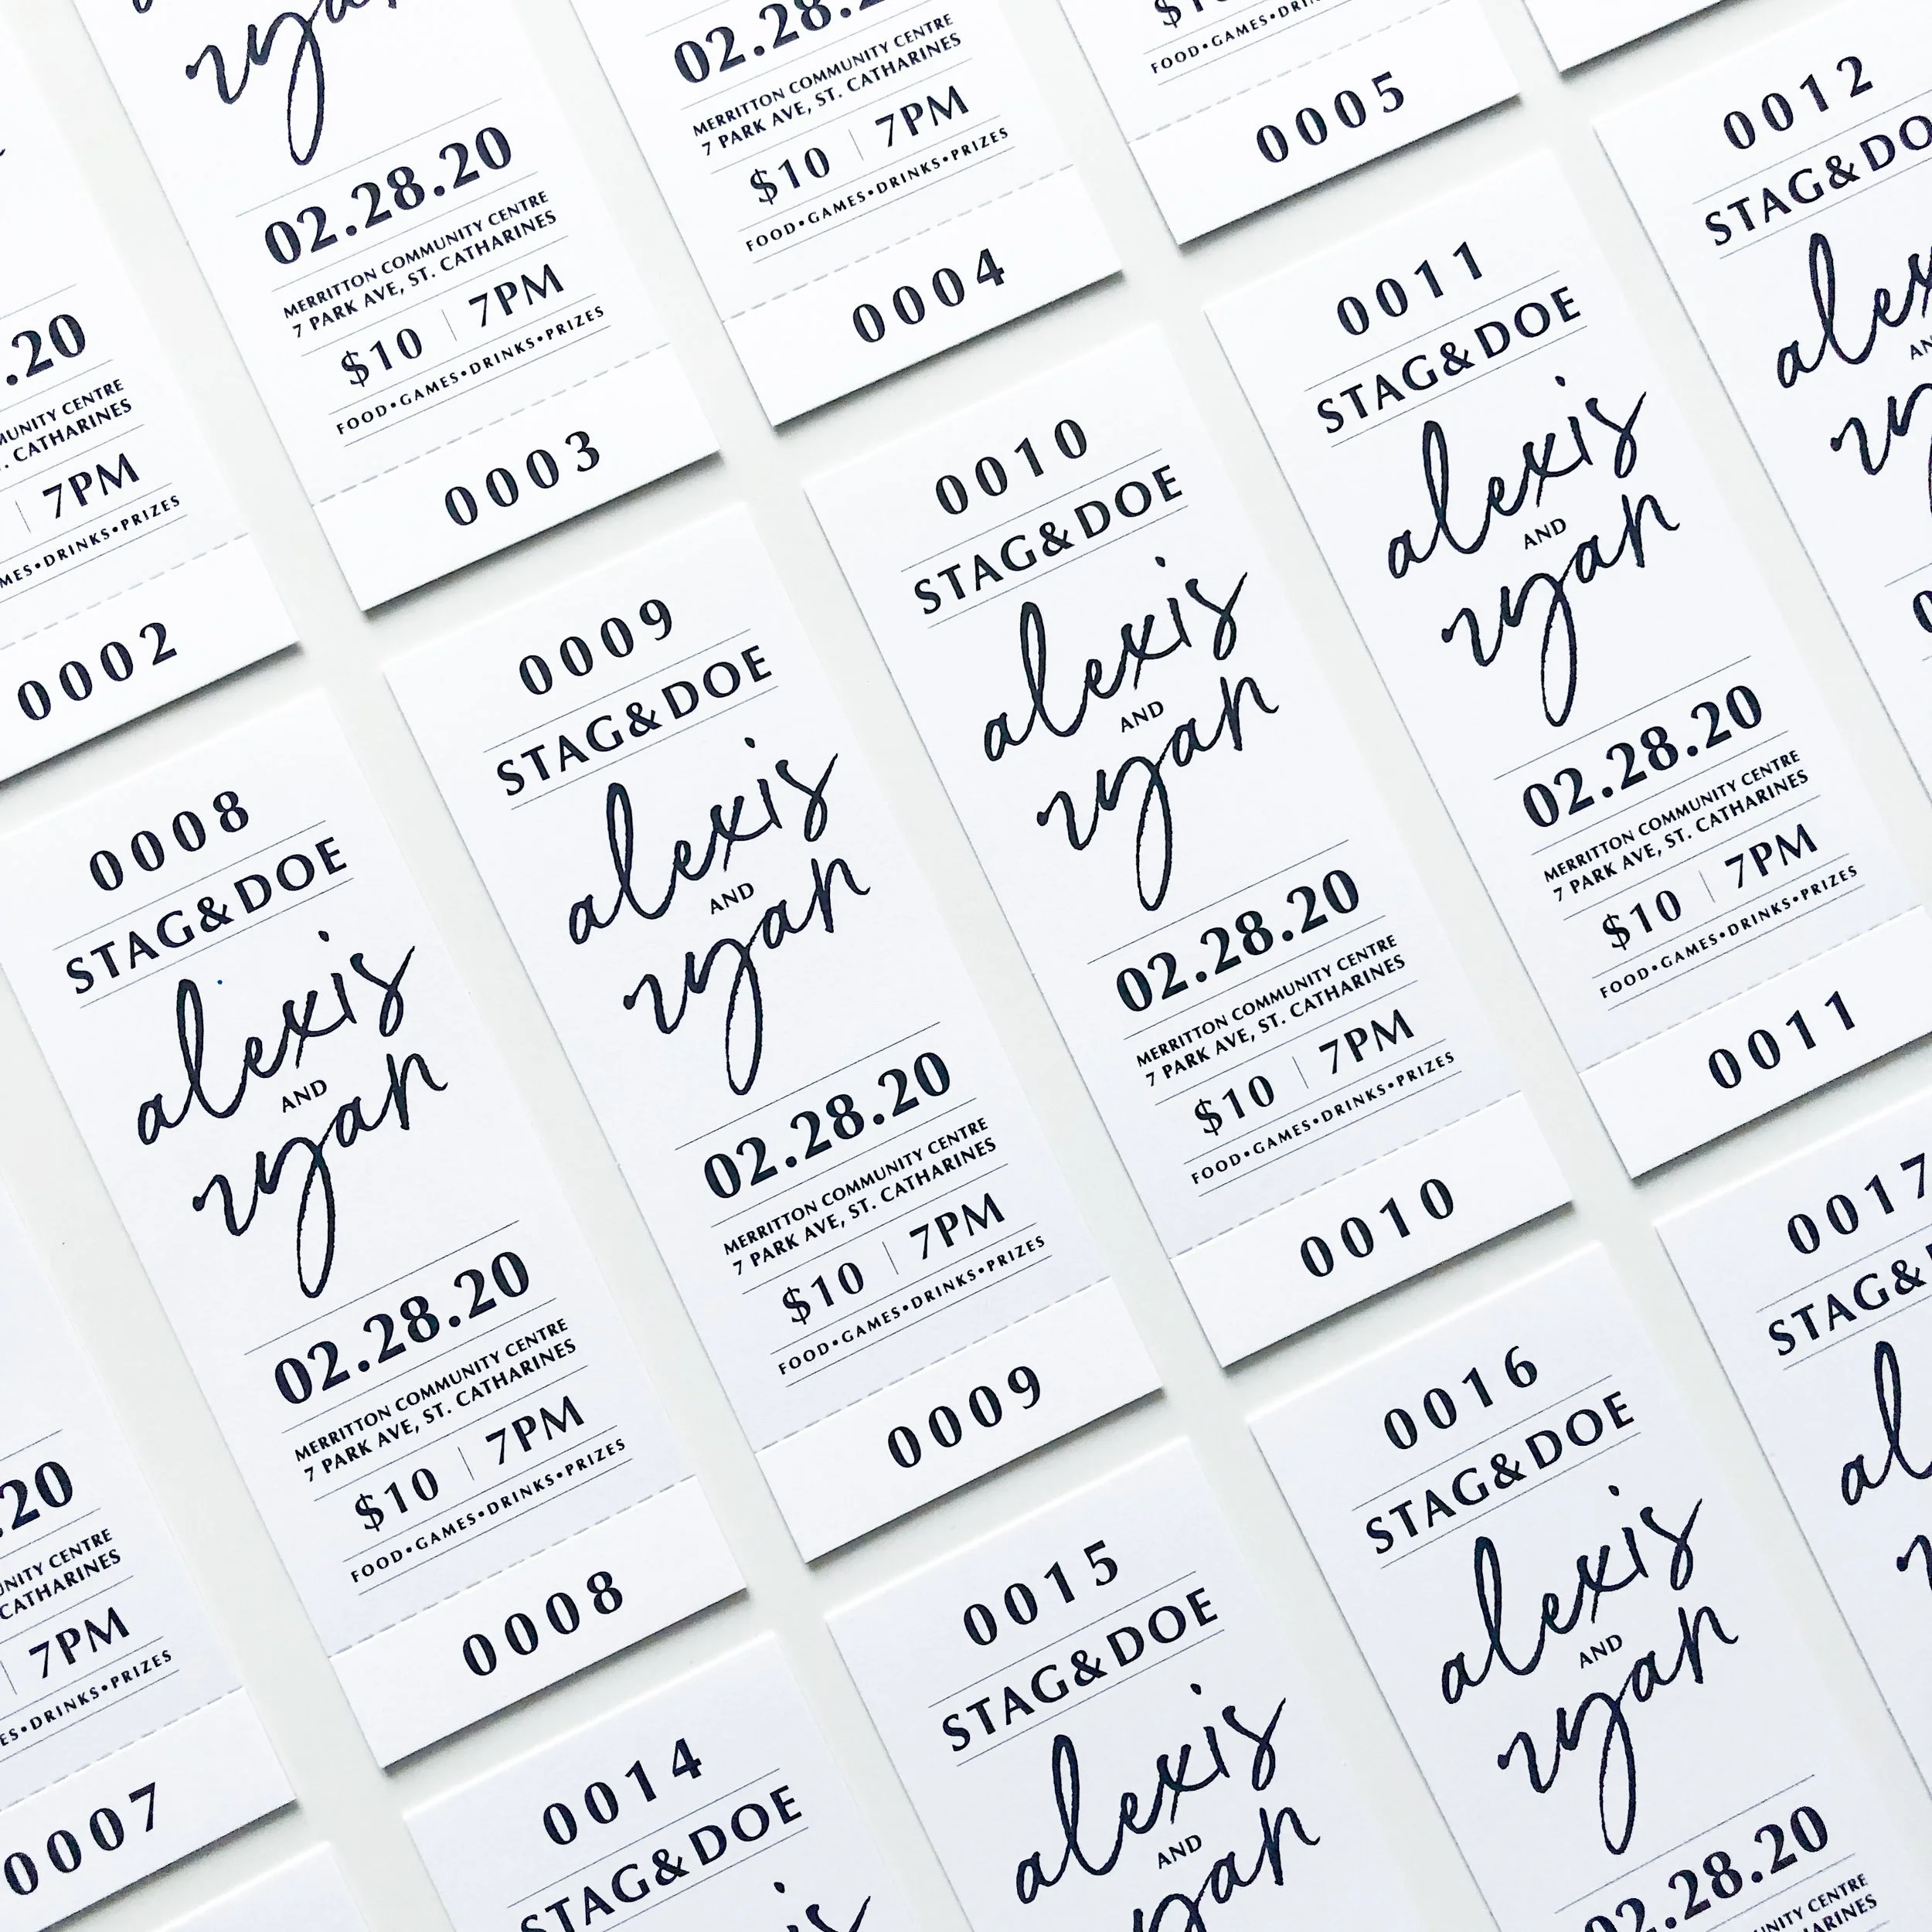 ryan
02.28.20
MERRITTON COMMUNITY CENTRE
7 PARK AVE, ST. CATHARINES
$10 | 7PM
FOOD•GAMES•DRINKS•PRIZES
0003
02.28.2
MERRITTON COMMUNITY CENTRE
7 PARK AVE, ST. CATHARINES
$10 | 7PM
FOOD•GAMES•DRINKS•PRIZES
0004
FOOD•GAMES•DRI
0005
.20
CENTRE
CATHARINES
7PM
MES•DRINKS•PRIZES
0002
0008
STAG&DOE
alexis
AND
ryan
02.28.20
MERRITTON COMMUNITY CENTRE
7 PARK AVE, ST. CATHARINES
$10 | 7PM
FOOD•GAMES•DRINKS•PRIZES
0008
0009
STAG&DOE
alexis
AND
ryan
02.28.20
MERRITTON COMMUNITY CENTRE
7 PARK AVE, ST. CATHARINES
$10 | 7PM
FOOD•GAMES•DRINKS•PRIZES
0009
0010
STAG&DOE
alexis
AND
ryan
02.28.20
MERRITTON COMMUNITY CENTRE
7 PARK AVE, ST. CATHARINES
$10 | 7PM
FOOD•GAMES•DRINKS•PRIZES
0010
0011
STAG&DOE
alexis
AND
ryan
02.28.20
MERRITTON COMMUNITY CENTRE
7 PARK AVE, ST. CATHARINES
$10 | 7PM
FOOD•GAMES•DRINKS•PRIZES
0011
0012
STAG&DO
alex
.20
CENTRE
CATHARINES
7PM
ES•DRINKS•PRIZES
0007
0014
STAG&DOE
0015
STAG&DOE
alexis
AND
ryan
0016
STAG&DOE
alexis
AND
ryan
02.28.20
CENTRE
0017
STAG&
al